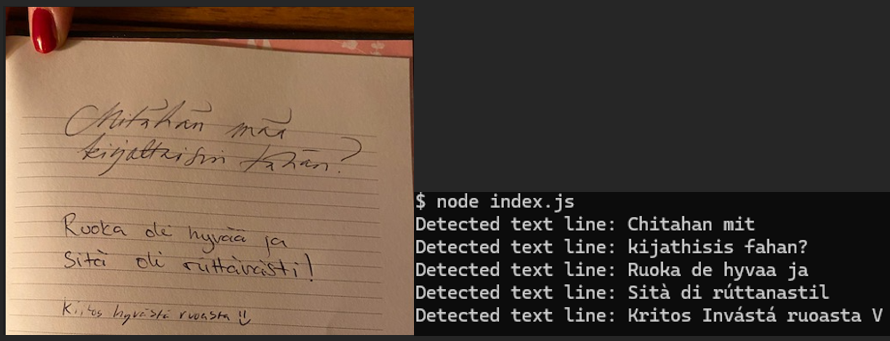 Mitähän mää
kirjottaisin tähän?
Ruoka oli hyvää ja
sitä oli riittävästi!
Kiitos hyvästä ruoasta
$ node index.js
Detected text line: Chitahan mit
Detected text line: kijathisis fahan?
Detected text line: Ruoka de hyvaa ja
Detected text line: Sità di rúttanastil
Detected text line: Kritos Invástá ruoasta V